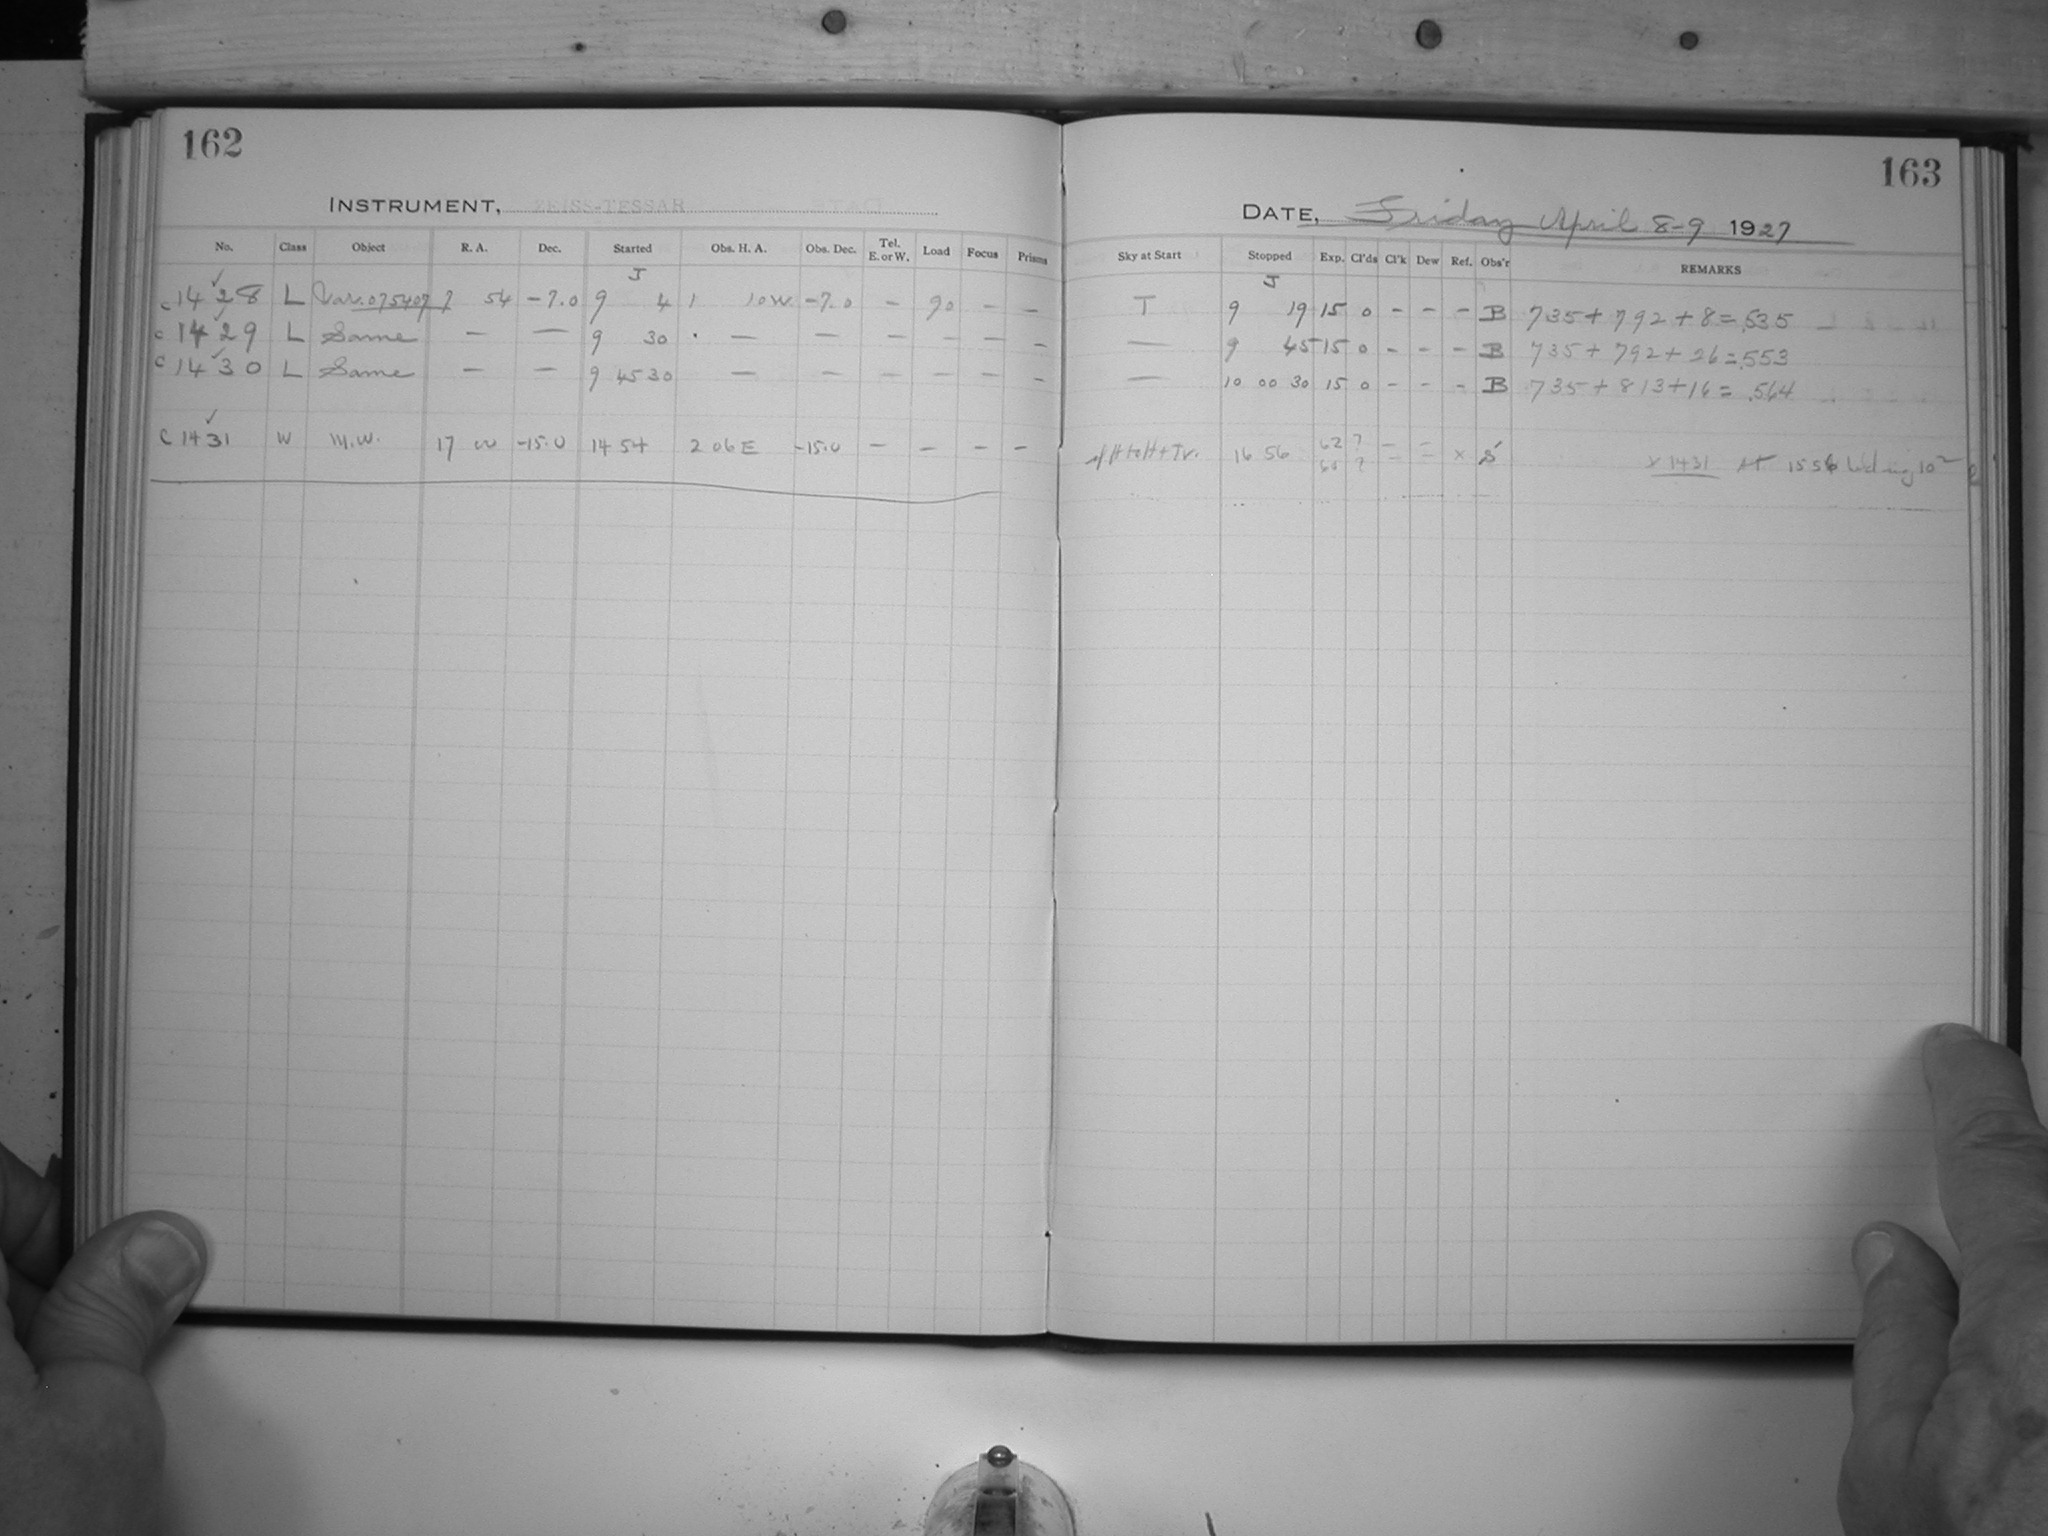 162
INSTRUMENT, ZEISS-TESSAR
No. Class Object R. A. Dec. Started Obs. H. A. Obs. Dec. Tel. E. or W. Load Focus Prisms
J
c 1428 L Var. 075407 7 54 -7.0 9 4 1 10 W. -7.0 - 90 - -
c 1429 L Same - - 9 30 - - - - - -
c 1430 L Same - - 9 45 30 - - - - - -
C 1431 W M.W. 17 00 -15.0 14 54 2 06 E -15.0 - - - -
163
DATE, Friday April 8-9 1927
Sky at Start Stopped Exp. Cl'ds Cl'k Dew Ref. Obs'r REMARKS
J
T 9 19 15 0 - - - B 735 + 792 + 8 = .535
- 9 45 15 0 - - - B 735 + 792 + 26 = .553
- 10 00 30 15 0 - - - B 735 + 813 + 16 = .564
16 56 62 ? - - x S x 1431 At 15 56
60 ? - -